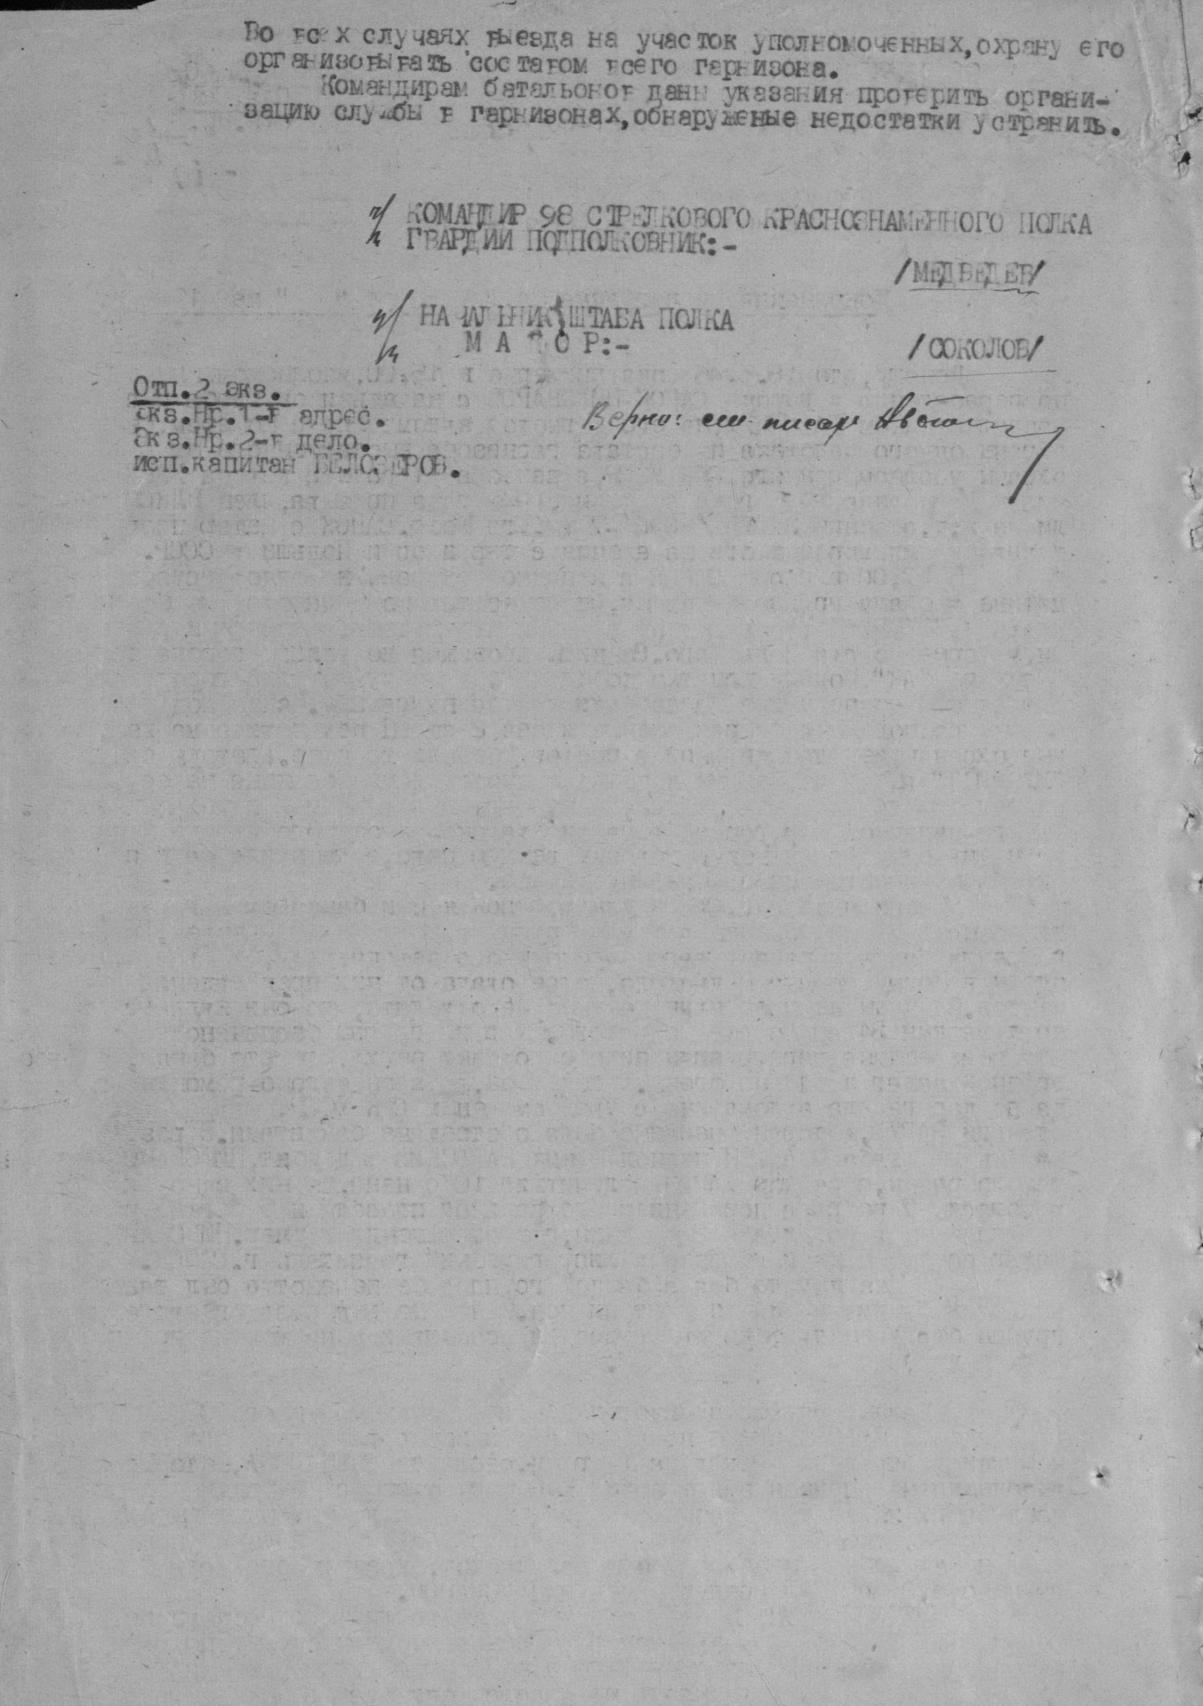 Во всех случаях выезда на участок уполномоченных, охрану его
организовывать составом всего гарнизона.
Командирам батальонов даны указания проверить органи-
зацию службы в гарнизонах, обнаруженые недостатки устранить.
п/п КОМАНДИР 98 СТРЕЛКОВОГО КРАСНОЗНАМЕННОГО ПОЛКА
ГВАРДИИ ПОДПОЛКОВНИК:-
/МЕДВЕДЕВ/
п/п НАЧАЛЬНИК ШТАБА ПОЛКА
МАЙОР:-
/СОКОЛОВ/
Отп.2 экз.
экз.Нр.1-в адрес.
экз.Нр.2-в дело.
исп.капитан БЕЛОЗЕРОВ.
Верно: ст. писарь